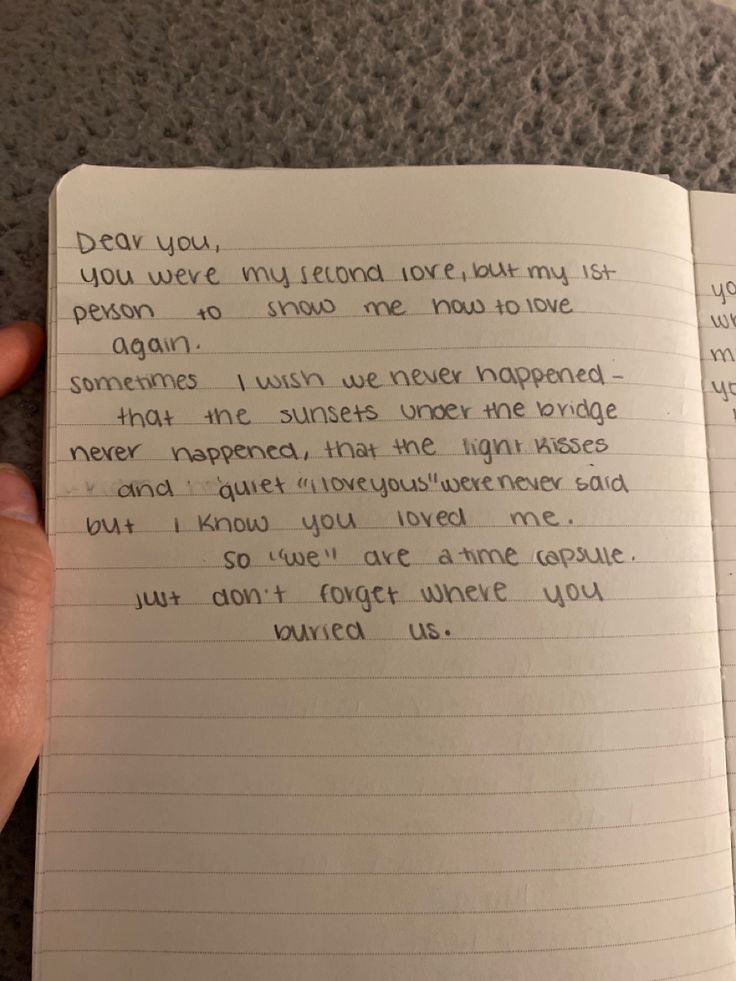 Dear you,
you were my second love, but my 1st
person to show me how to love
again.
sometimes I wish we never happened -
that the sunsets under the bridge
never happened, that the light kisses
and quiet "i love yous" were never said
but i know you loved me.
so "we" are a time capsule.
just don't forget where you
buried us.